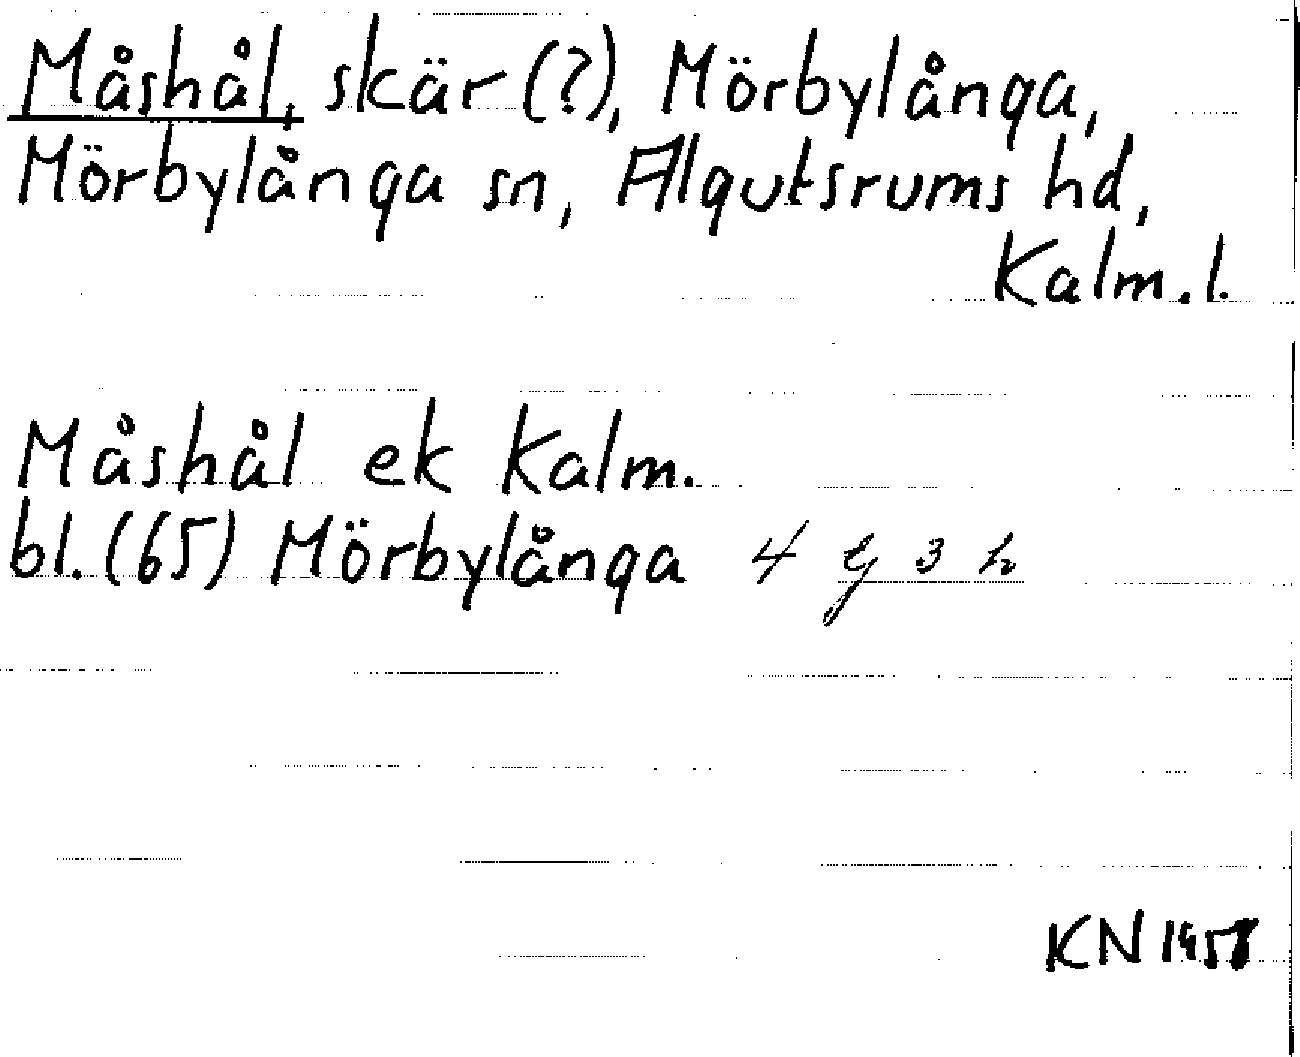 Måshål, skär (?), Mörbylånga,
Mörbylånga sn, Algutsrums hd,
Kalm. l.
Måshål ek Kalm.
bl. (65) Mörbylånga 4 g 3 h
KN